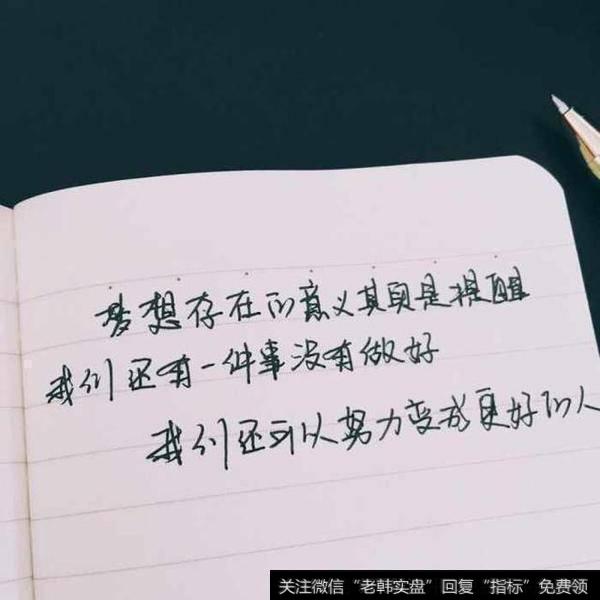 梦想存在的意义其实是提醒
我们还有一件事没有做好
我们还可以努力变成更好的人
关注微信“老韩实盘”回复“指标”免费领